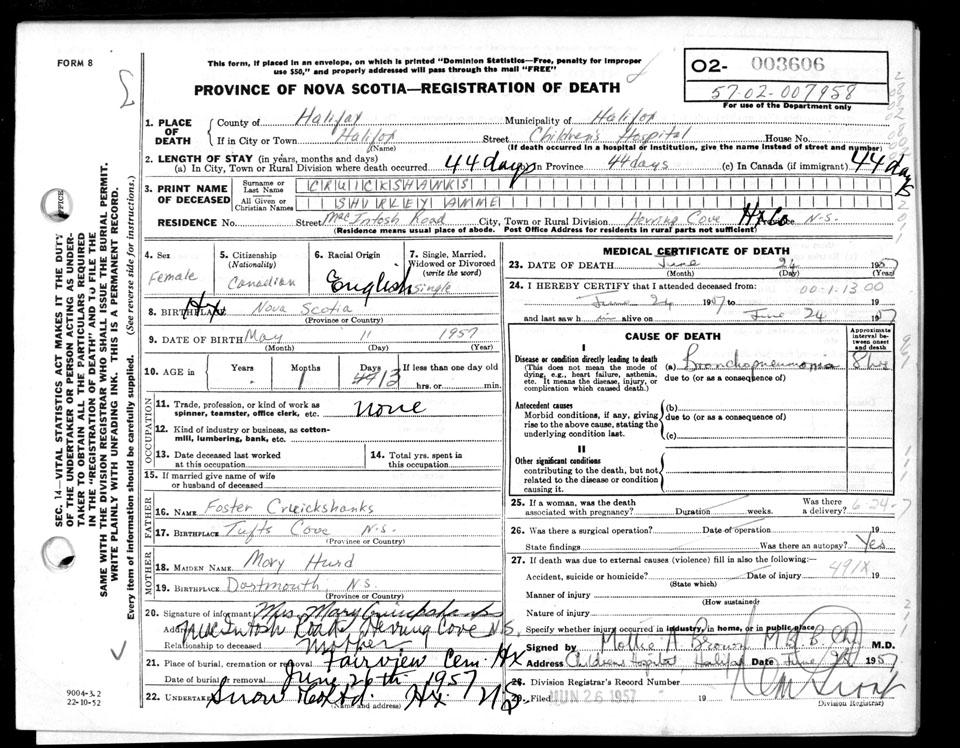 FORM 8
This form, if placed in an envelope, on which is printed "Dominion Statistics—Free, penalty for improper
use $50," and properly addressed will pass through the mail "FREE"
PROVINCE OF NOVA SCOTIA—REGISTRATION OF DEATH
O2- 003606
57-02-007958
For use of the Department only
1. PLACE OF DEATH
County of Halifax Municipality of Halifax
If in City or Town Halifax Street Children's Hospital House No.
(Name) (If death occurred in a hospital or institution, give the name instead of street and number)
2. LENGTH OF STAY (in years, months and days)
(a) In City, Town or Rural Division where death occurred 44 days In Province 44 days (c) In Canada (if immigrant) 44 days
3. PRINT NAME OF DECEASED
Surname or Last Name CRUICKSHANKS
All Given or Christian Names SHIRLEY ANNE
RESIDENCE No. Street MacIntosh Road City, Town or Rural Division Herring Cove Hx Co Province N.S.
(Residence means usual place of abode. Post Office Address for residents in rural parts not sufficient)
4. Sex Female
5. Citizenship (Nationality) Canadian
6. Racial Origin English
7. Single, Married, Widowed or Divorced (write the word) Single
8. BIRTHPLACE Hx Nova Scotia
(Province or Country)
9. DATE OF BIRTH May 11 1957
(Month) (Day) (Year)
10. AGE in Years Months 1 Days 44 13 If less than one day old hrs. or min.
OCCUPATION
11. Trade, profession, or kind of work as spinner, teamster, office clerk, etc. none
12. Kind of industry or business, as cotton-mill, lumbering, bank, etc.
13. Date deceased last worked at this occupation
14. Total yrs. spent in this occupation
15. If married give name of wife or husband of deceased
FATHER
16. NAME Foster Cruickshanks
17. BIRTHPLACE Tufts Cove N.S.
(Province or Country)
MOTHER
18. MAIDEN NAME Mary Hurd
19. BIRTHPLACE Dartmouth N.S.
(Province or Country)
20. Signature of informant Mrs. Mary Cruickshanks
Address MacIntosh Road, Herring Cove N.S.
Relationship to deceased mother
21. Place of burial, cremation or removal Fairview Cem. Hx
Date of burial or removal June 26th 1957
22. Undertaker Snow &Co Ltd. Hx. N.S.
(Name and address)
MEDICAL CERTIFICATE OF DEATH
23. DATE OF DEATH June 24 1957
(Month) (Day) (Year)
24. I HEREBY CERTIFY that I attended deceased from: 00-1-13 00
June 24 1957 to 19
and last saw h alive on June 24 1957
CAUSE OF DEATH
Approximate interval between onset and death
I
Disease or condition directly leading to death (a) Bronchopneumonia 8 hrs
(This does not mean the mode of dying, e.g., heart failure, asthenia, etc. It means the disease, injury, or complication which caused death.)
due to (or as a consequence of)
Antecedent causes (b)
Morbid conditions, if any, giving rise to the above cause, stating the underlying condition last.
due to (or as a consequence of)
(c)
II
Other significant conditions
contributing to the death, but not related to the disease or condition causing it.
25. If a woman, was the death associated with pregnancy? Duration weeks. Was there a delivery? 6-24-7
26. Was there a surgical operation? Date of operation 19
State findings Was there an autopsy? Yes
27. If death was due to external causes (violence) fill in also the following:
Accident, suicide or homicide? Date of injury 491X 19
(State which)
Manner of injury
(How sustained)
Nature of injury
Specify whether injury occurred in industry, in home, or in public place
Signed by Mollie A. Brown M.B. B.Ch M.D.
Address Children's Hospital Halifax Date June 1957
28. Division Registrar's Record Number
29. Filed JUN 26 1957 19
Division Registrar)
SEC. 14—VITAL STATISTICS ACT MAKES IT THE DUTY
OF THE UNDERTAKER OR PERSON ACTING AS UNDER-
TAKER TO OBTAIN ALL THE PARTICULARS REQUIRED
IN THE "REGISTRATION OF DEATH" AND TO FILE THE
SAME WITH THE DIVISION REGISTRAR WHO SHALL ISSUE THE BURIAL PERMIT.
WRITE PLAINLY WITH UNFADING INK. THIS IS A PERMANENT RECORD.
Every item of information should be carefully supplied. (See reverse side for instructions.)
9004-3.2
22-10-52